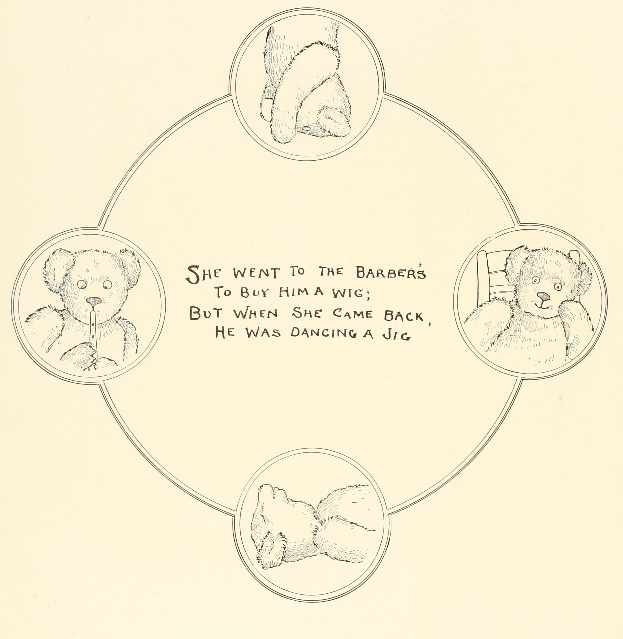 SHE WENT TO THE BARBER'S
TO BUY HIM A WIG;
BUT WHEN SHE CAME BACK,
HE WAS DANCING A JIG